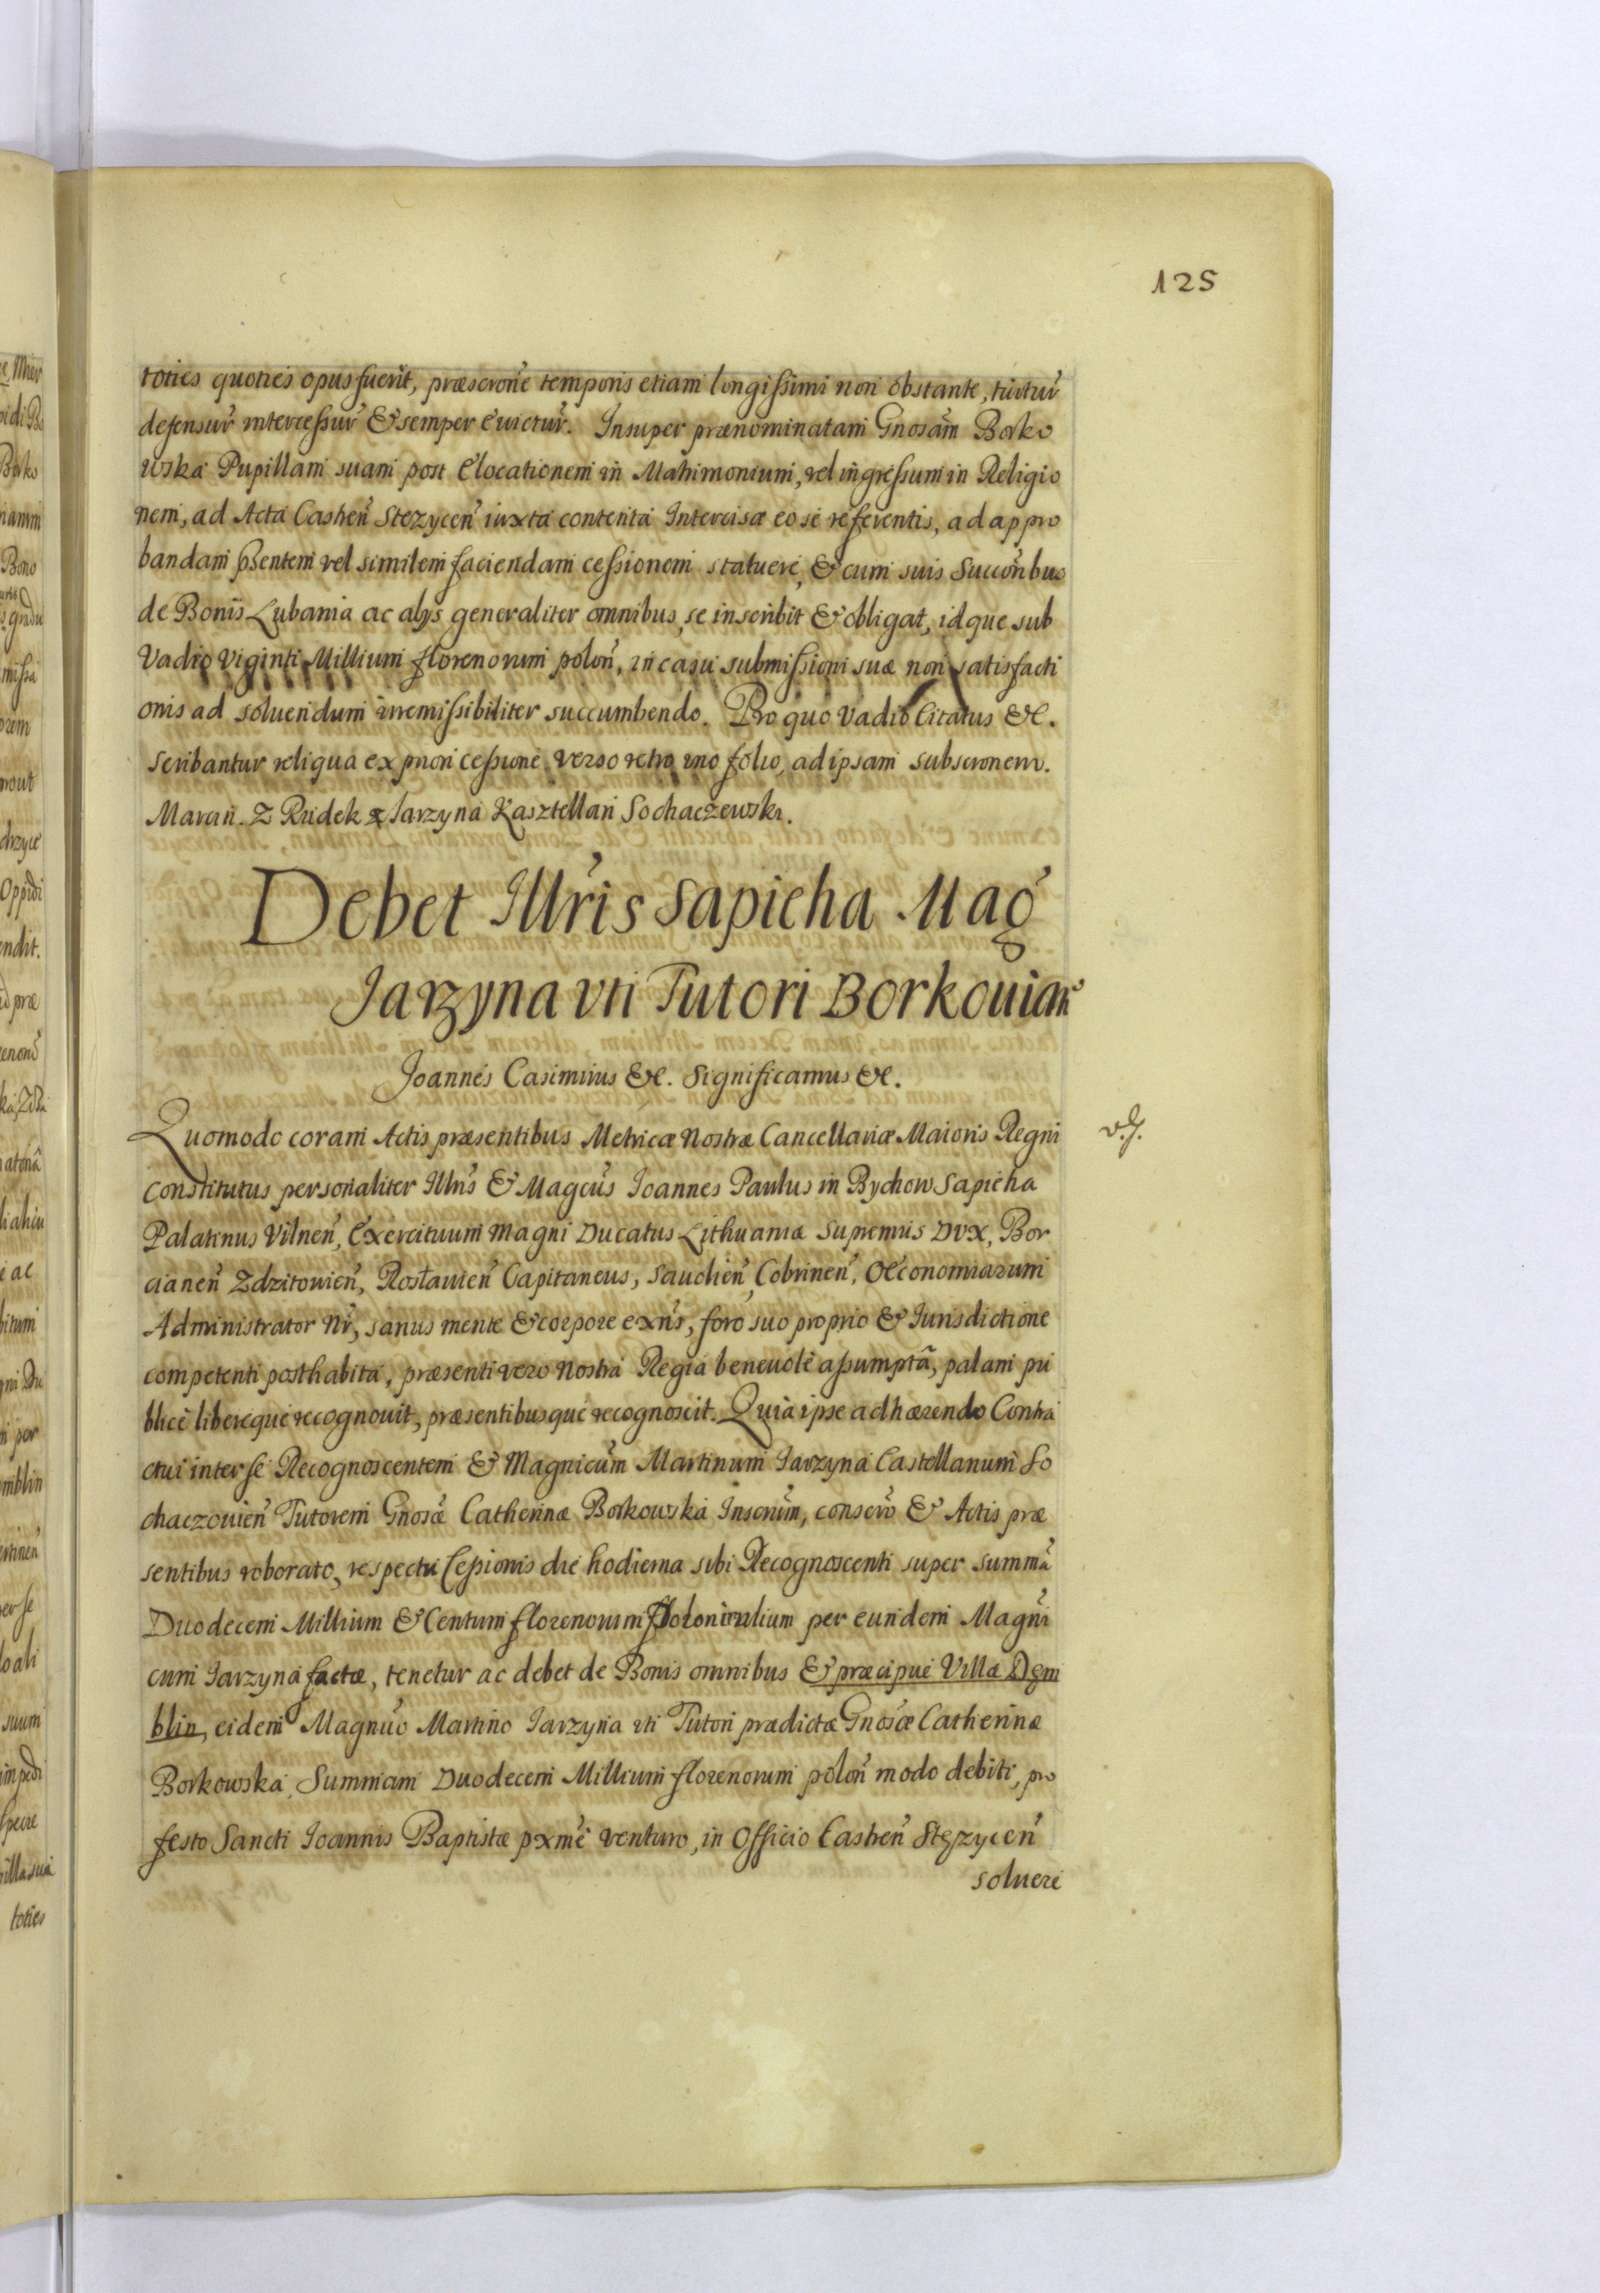 125
toties quoties opus fuerit, præscrone temporis etiam longissimi non obstante, tuitur
defensur intercessur & semper euictur. Insuper prænominatam Gnosam Borko
wska Pupillam suam post elocationem in Matrimonium, vel ingressum in Religio
nem, ad Acta Castren Stezycen iuxta contenta Intercisæ eo se referentis, ad appro
bandam pñtem vel similem faciendam cessionem statuere, & cum suis Succonbus
de Bonis Lubania ac alys generaliter omnibus, se inscribit & obligat, idque sub
Vadio Viginti Millium florenorum polon, in casu submissioni suæ non satisfacti
onis ad soluendum irremissibiliter succumbendo. Pro quo Vadio Citatus &c.
scribantur reliqua ex priori cessione verso retro uno folio, ad ipsam subscronem.
Marcin Z Rudek Iarzyna Kasztellan Sochaczewski.
Debet Illris Sapieha Mag
Iarzyna vti Tutori Borkouian
Joannes Casimirus &c. Significamus &c.
Quomodo coram Actis præsentibus Metricæ Nostræ Cancellariæ Maioris Regni
constitutus personaliter Illris & Magcus Ioannes Paulus in Bychow Sapieha
Palatinus Vilnen, Exercituum Magni Ducatus Lithuaniæ Supremus Dux, Bor
cianen Zdzitouien, Rosłauien Capitaneus, Sauchen, Cobrinen, Oeconomiarum
Administrator Nr, sanus mente & corpore exns, foro suo proprio & Iurisdictione
competenti posthabita, præsenti vero Nostra Regia beneuole assumptâ, palam pu
blicè libereque recognouit, præsentibusque recognoscit. Quia ipse adhærendo Contra
ctui inter se Recognoscentem & Magnicum Martinum Iarzyna Castellanum So
chaczouien Tutorem Gnosæ Catherinæ Borkowska Inscrum, conscro & Actis præ
sentibus roborato, respectu Cessionis die hodierna sibi Recognoscenti super summa
Duodecem Millium & Centum florenorum Polonicalium per eundem Magni
cum Iarzyna factæ, tenetur ac debet de Bonis omnibus & præcipue Villa Dęm
blin, eidem Magnuo Martino Iarzyna vti Tutori prædictæ Gnosæ Catherinæ
Borkowska, Summam Duodecem Millium florenorum polon modo debiti, pro
festo Sancti Ioannis Baptistæ pxmè venturo, in Officio Castren Stęzycen
soluere